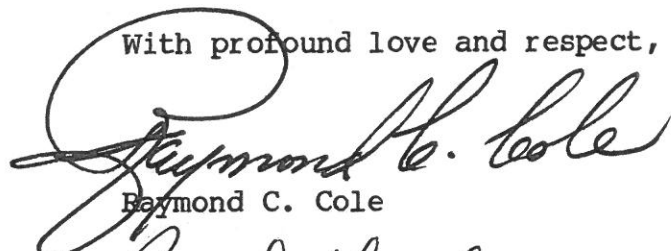 With profound love and respect,
Raymond C. Cole
Raymond C. Cole